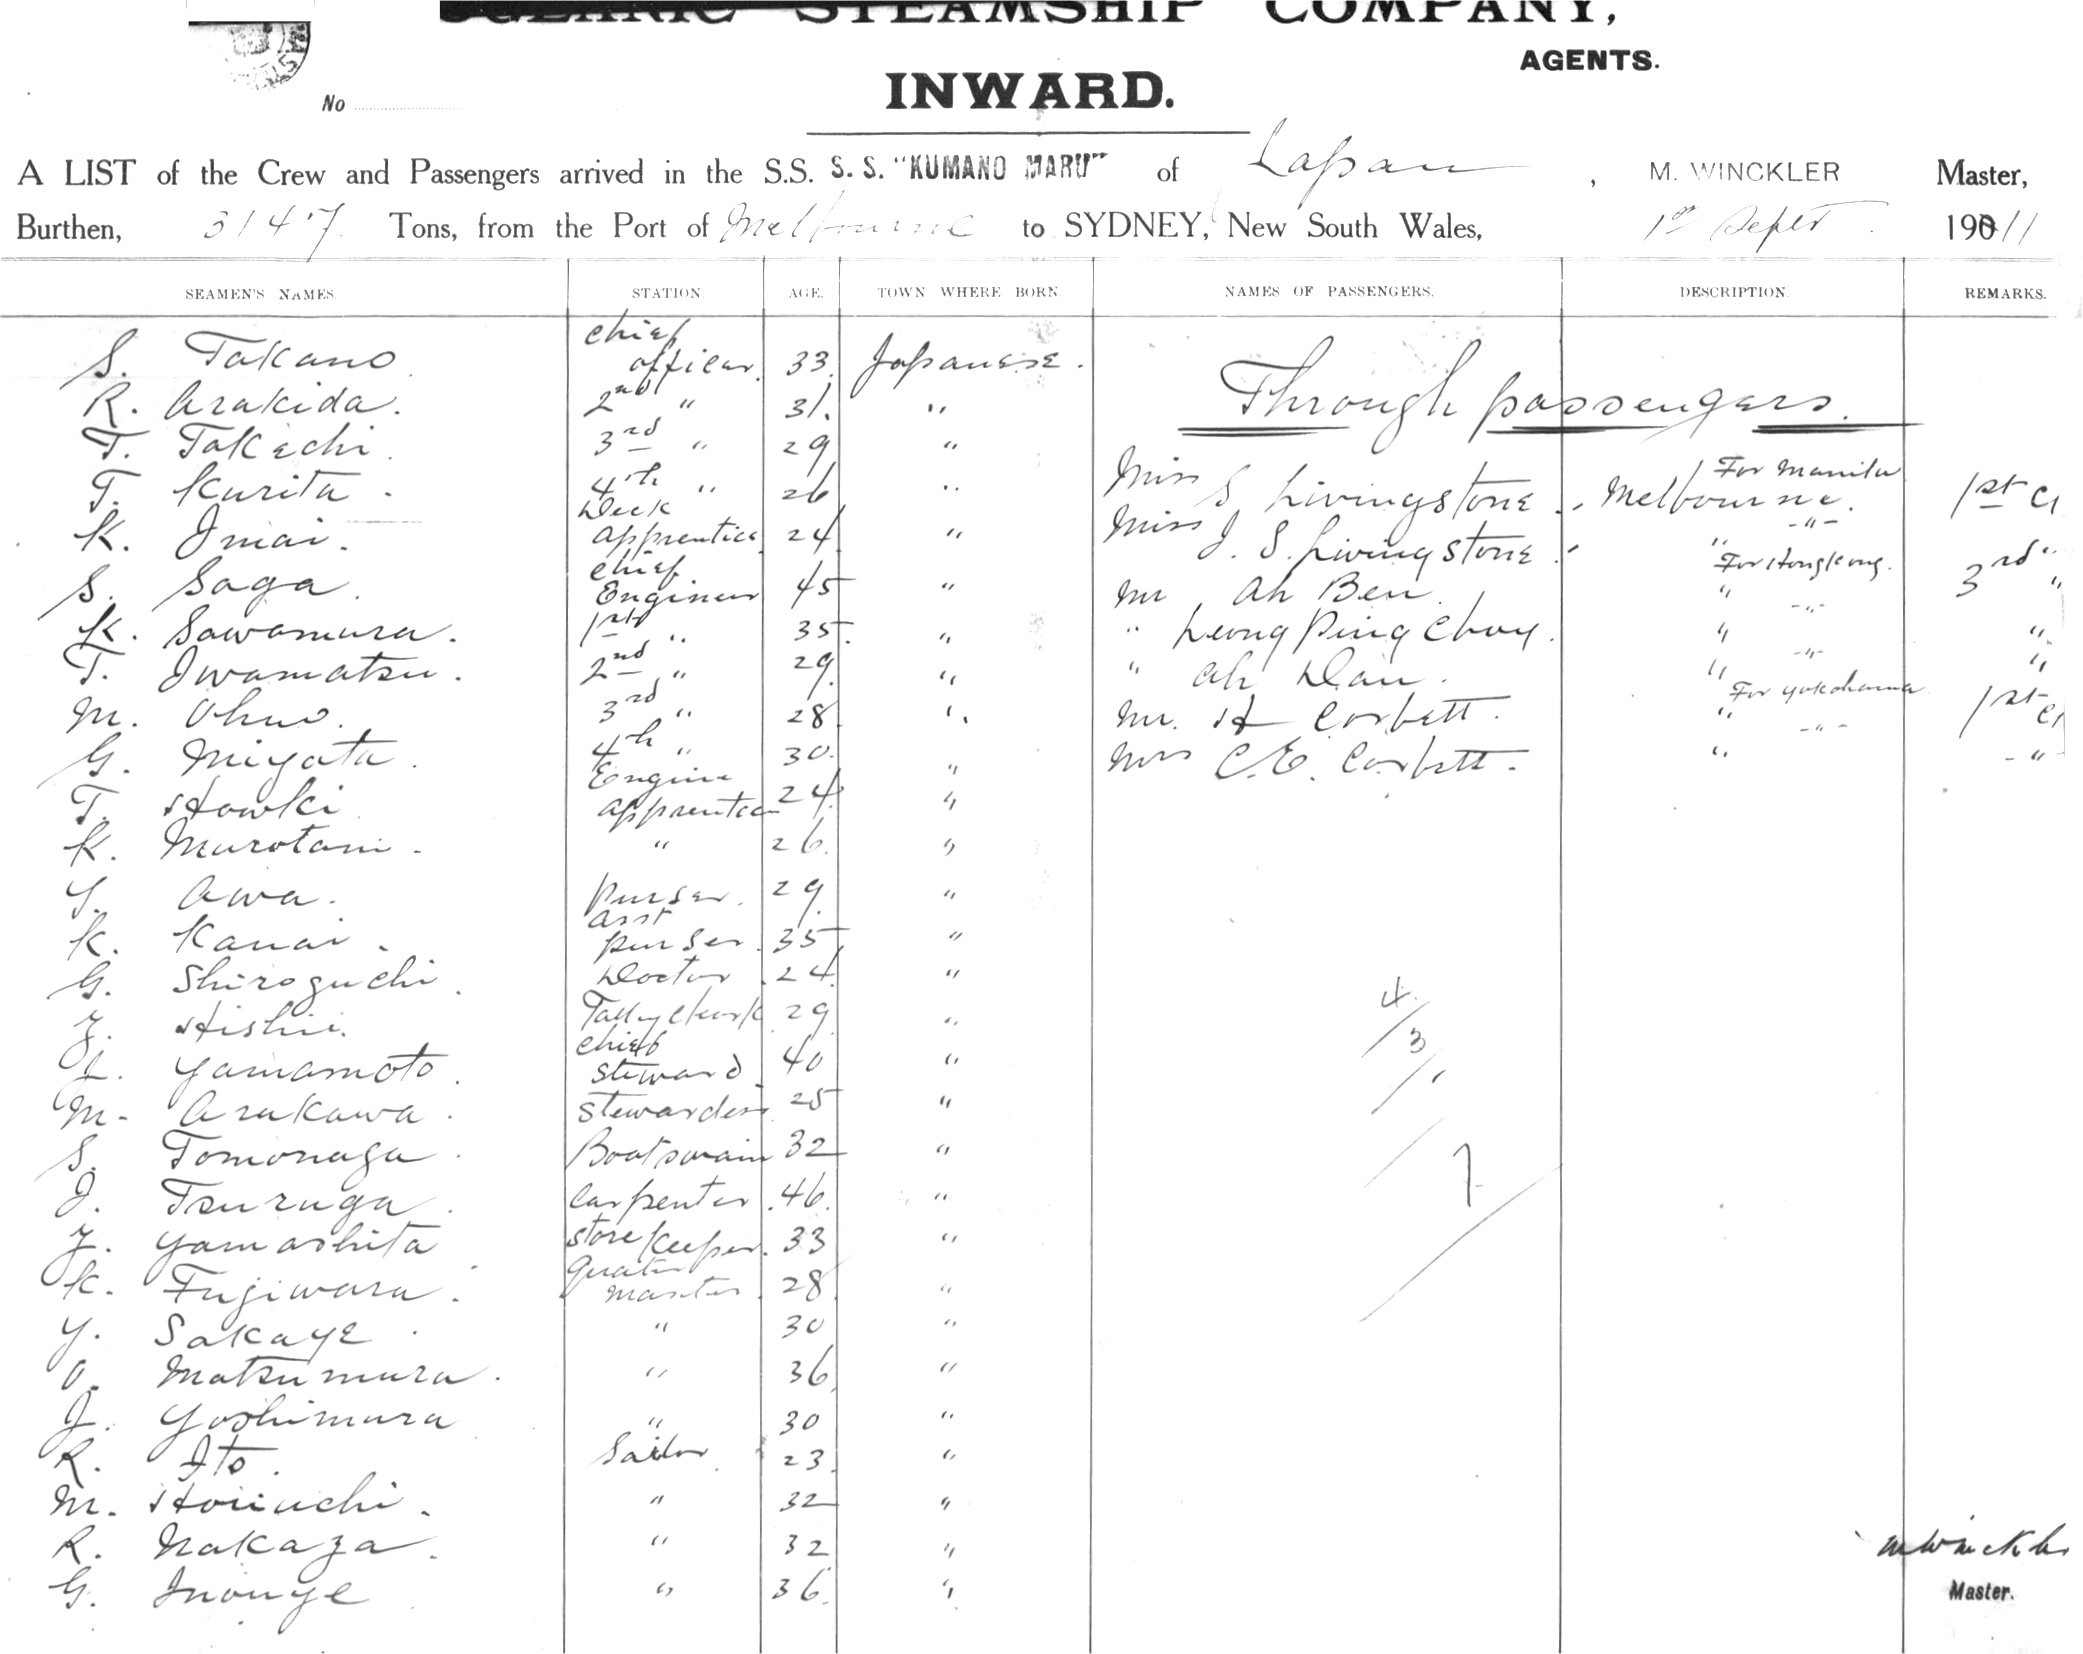 OCEANIC STEAMSHIP COMPANY,
AGENTS.
INWARD.
No
A LIST of the Crew and Passengers arrived in the S.S. S. S. "KUMANO MARU" of Japan, M. WINCKLER Master,
Burthen, 3147 Tons, from the Port of Melbourne to SYDNEY, New South Wales, 1st Sept 1911
SEAMEN'S NAMES STATION AGE. TOWN WHERE BORN NAMES OF PASSENGERS. DESCRIPTION. REMARKS.
S. Takano chief officer. 33 Japanese.
Through passengers.
R. Arakida. 2nd " 31. "
T. Takechi. 3rd " 29 "
T. Kurita. 4th " 26 " Miss S Livingstone. Melbourne. For Manila 1st Cl
K. Imai. Deck apprentice 24 " Miss J. S. Livingstone. " -"- "
S. Saga. chief Engineer 45 " Mr Ah Ben. " For Hongkong. 3rd "
K. Sawamura. 1st " 35. " " Leong Ping Choy. " -"- "
T. Iwamatsu. 2nd " 29. " " Ah Dan. " -"- "
M. Ohno. 3rd " 28 " Mr. H Corbett. " For Yokohama 1st Cl
G. Miyata. 4th " 30. " Mrs C. E. Corbett. " -"- -"
T. Howki Engine apprentice 24. "
K. Murotani. " 26. "
Y. Awa. Purser. 29. "
K. Kanai. asst purser. 35 "
G. Shiroguchi. Doctor. 24. "
Z. Hishii. Tally clerk 29 "
I. Yamamoto. chief steward 40 "
M. Arakawa. stewardess 25 "
S. Tomonaga. Boatswain 32 "
J. Tsuruga. Carpenter. 46. "
Z. Yamashita storekeeper. 33 "
K. Fujiwara. Quater master. 28. "
Y. Sakaye. " 30 "
O. Matsumura. " 36. "
J. Yoshimura " 30 "
R. Ito. Sailor. 23. "
M. Horiuchi. " 32 "
R. Nakaza. " 32 "
G. Inouye " 36. "
4
/ 3
/
/ 7
M Winckler
Master.